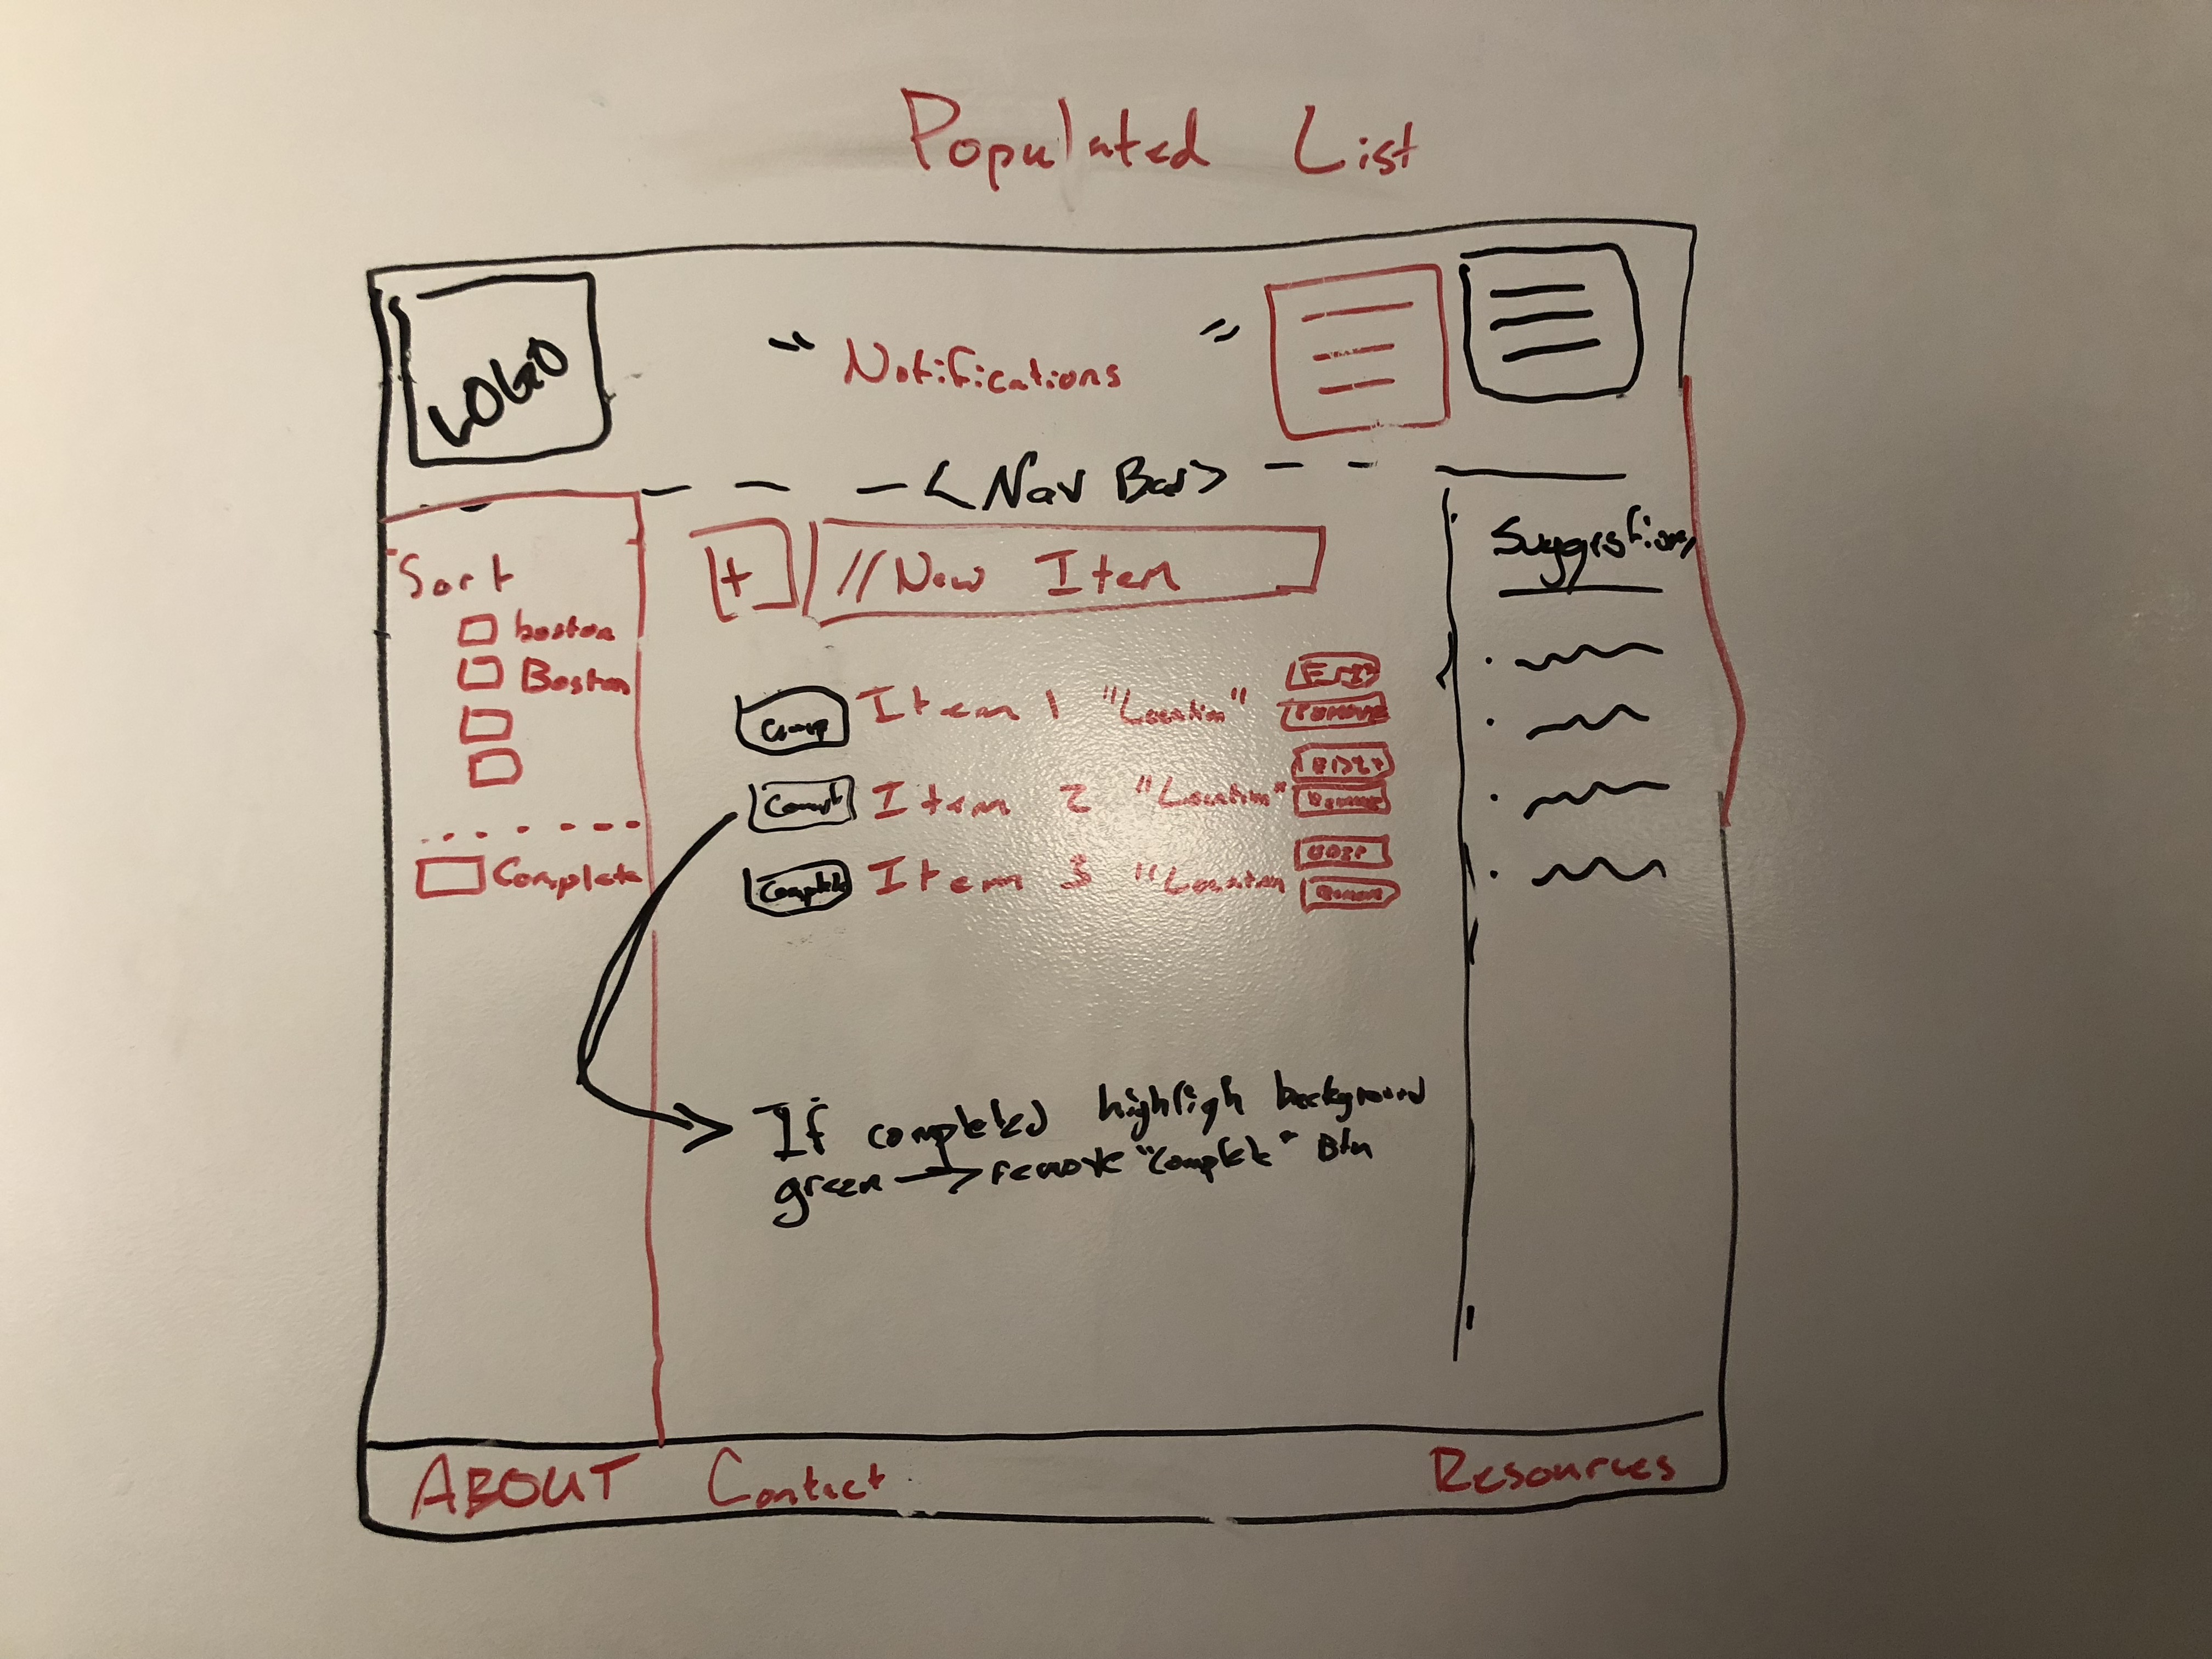 Populated List
LOGO
" Notifications "
<Nav Bar>
Sort
boston
Boston
Complete
+
//New Item
Comp Item 1 "Location" Edit
Remove
Item 2 "Location" Edit
Remove
Complete Item 3 "Location Edit
Remove
If completed highligh background
green → remove "Complete" Btn
Suggestions
ABOUT Contact Resources